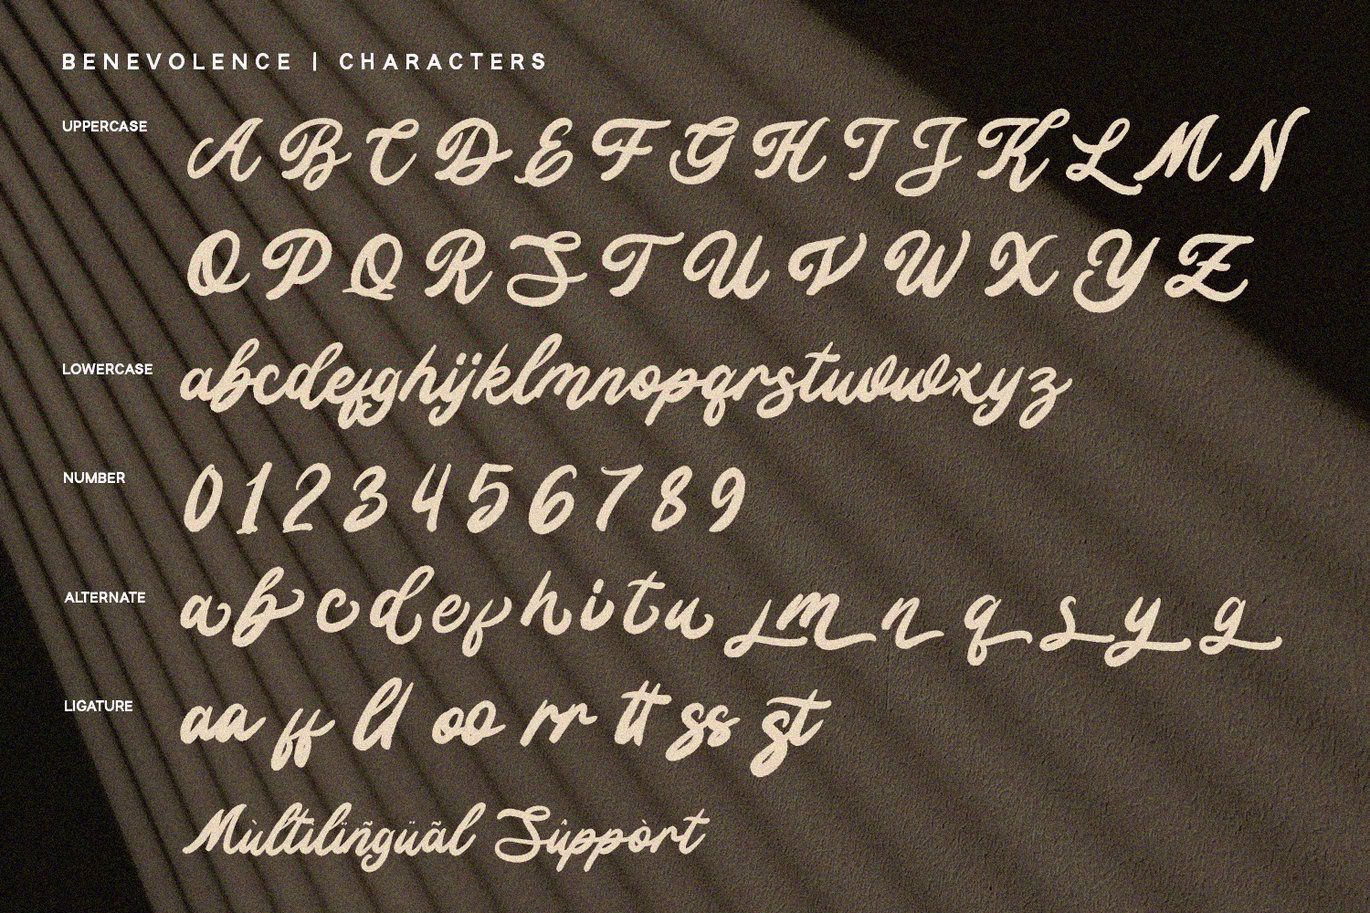 BENEVOLENCE | CHARACTERS
UPPERCASE
A B C D E F G H I J K L M N
O P Q R S T U V W X Y Z
LOWERCASE
abcdefghijklmnopqrstuvwxyz
NUMBER
0 1 2 3 4 5 6 7 8 9
ALTERNATE
a b c d e f h i t u m n q s y g
LIGATURE
aa ff ll oo rr tt ss st
Mùltilïñgüãl Sûppòrt